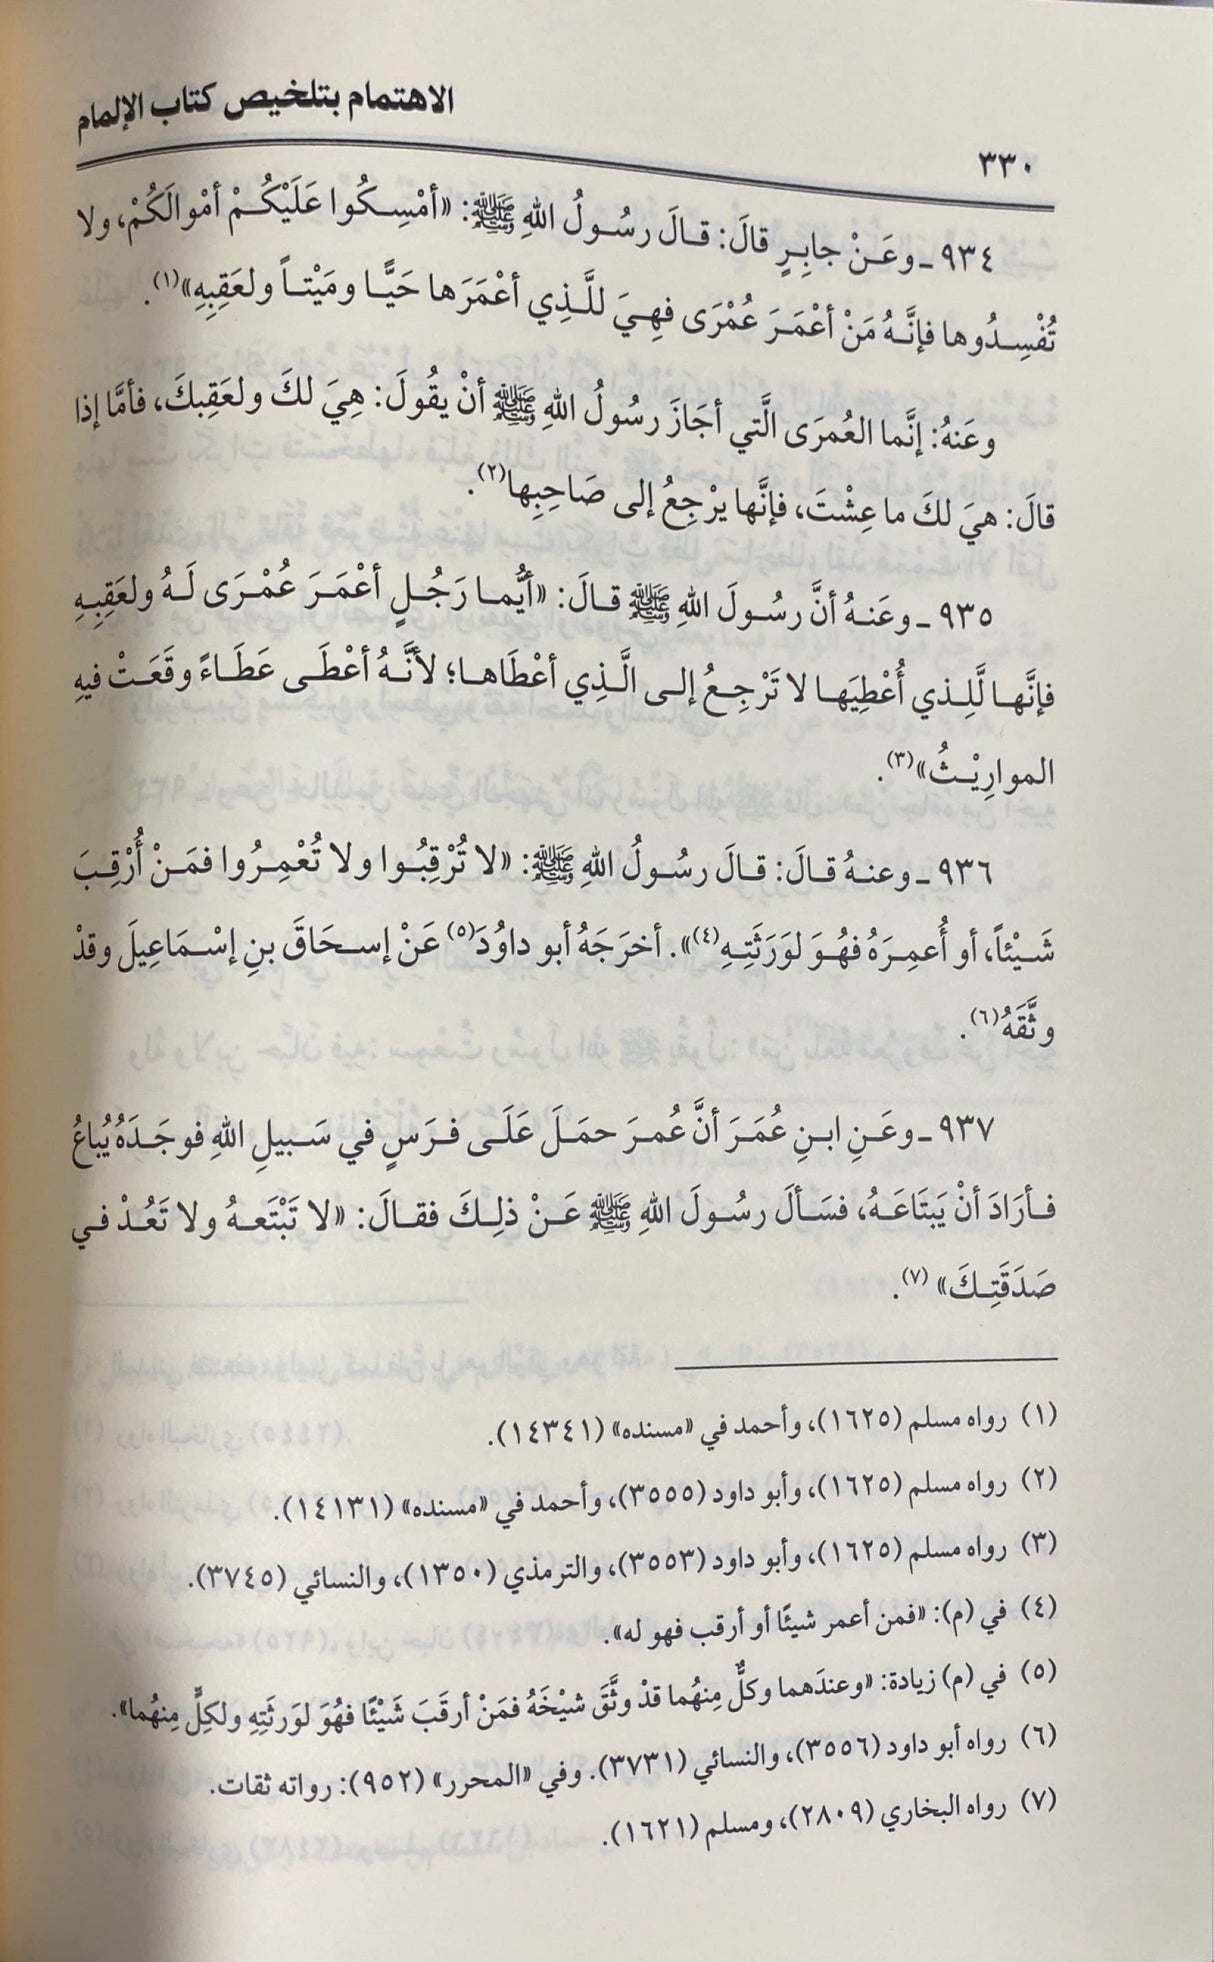 الاهتمام بتلخيص كتاب الإلمام
٣٣٠
٩٣٤ ـ وعَـنْ جابِـرٍ قالَ: قـالَ رسُـولُ اللهِ ﷺ: «أمْسِـكُوا عَلَيْكُـمْ أمْوالَكُمْ، ولا
تُفْسِـدُوها فإنَّـهُ مَنْ أعْمَـرَ عُمْرَى فهِـيَ للَّـذِي أعْمَرَها حَيًّـا ومَيْتـاً ولعَقِبِهِ»(١).
وعَنهُ: إنَّما العُمرَى الَّتي أجَازَ رسُولُ اللهِ ﷺ أنْ يقُولَ: هِيَ لكَ ولعَقِبكَ، فأمَّا إذا
قالَ: هيَ لكَ ما عِشْتَ، فإنَّها يرْجِعُ إلى صَاحِبِها(٢).
٩٣٥ ـ وعَنـهُ أنَّ رسُـولَ اللهِ ﷺ قـالَ: «أيُّمـا رَجُـلٍ أعْمَـرَ عُمْـرَى لَـهُ ولعَقِبِـهِ
فإنَّهـا لَّلِـذي أُعْطِيَهـا لا تَرْجِـعُ إلـى الَّـذِي أعْطَاهـا؛ لأنَّـهُ أعْطَـى عَطَـاءً وقَعَـتْ فيهِ
المواريْـثُ»(٣).
٩٣٦ ـ وعنـهُ قـالَ: قـالَ رسُـولُ اللهِ ﷺ: «لا تُرْقِبُـوا ولا تُعْمِـرُوا فمَـنْ أُرْقِـبَ
شَـيْئاً، أو أُعمِـرَهُ فهُـوَ لوَرَثَتِـهِ(٤)». أخرَجَهُ أبو داوُدَ(٥) عَنْ إسـحَاقَ بنِ إسْـمَاعِيلَ وقدْ
وثَّقَهُ(٦).
٩٣٧ ـ وعَـنِ ابـنِ عُمَـرَ أنَّ عُمـرَ حمَـلَ عَلَـى فـرَسٍ في سَـبيلِ اللهِ فوجَـدَهُ يُباعُ
فـأرَادَ أنْ يَبتَاعَـهُ، فسَـألَ رسُـولَ اللهِ ﷺ عَـنْ ذلِـكَ فقـالَ: «لا تَبْتَعـهُ ولا تَعُـدْ فـي
صَدَقَتِـكَ» (٧).
(١) رواه مسلم (١٦٢٥)، وأحمد في «مسنده» (١٤٣٤١).
(٢) رواه مسلم (١٦٢٥)، وأبو داود (٣٥٥٥)، وأحمد في «مسنده» (١٤١٣١).
(٣) رواه مسلم (١٦٢٥)، وأبو داود (٣٥٥٣)، والترمذي (١٣٥٠)، والنسائي (٣٧٤٥).
(٤) في (م): «فمن أعمر شيئًا أو أرقب فهو له».
(٥) في (م) زيادة: «وعندَهما وكلٌّ مِنهُما قدْ وثَّقَ شيْخَهُ فمَنْ أرقَبَ شَيْئًا فهُوَ لوَرثَتِهِ ولكِلٍّ مِنهُما».
(٦) رواه أبو داود (٣٥٥٦)، والنسائي (٣٧٣١). وفي «المحرر» (٩٥٢): رواته ثقات.
(٧) رواه البخاري (٢٨٠٩)، ومسلم (١٦٢١).